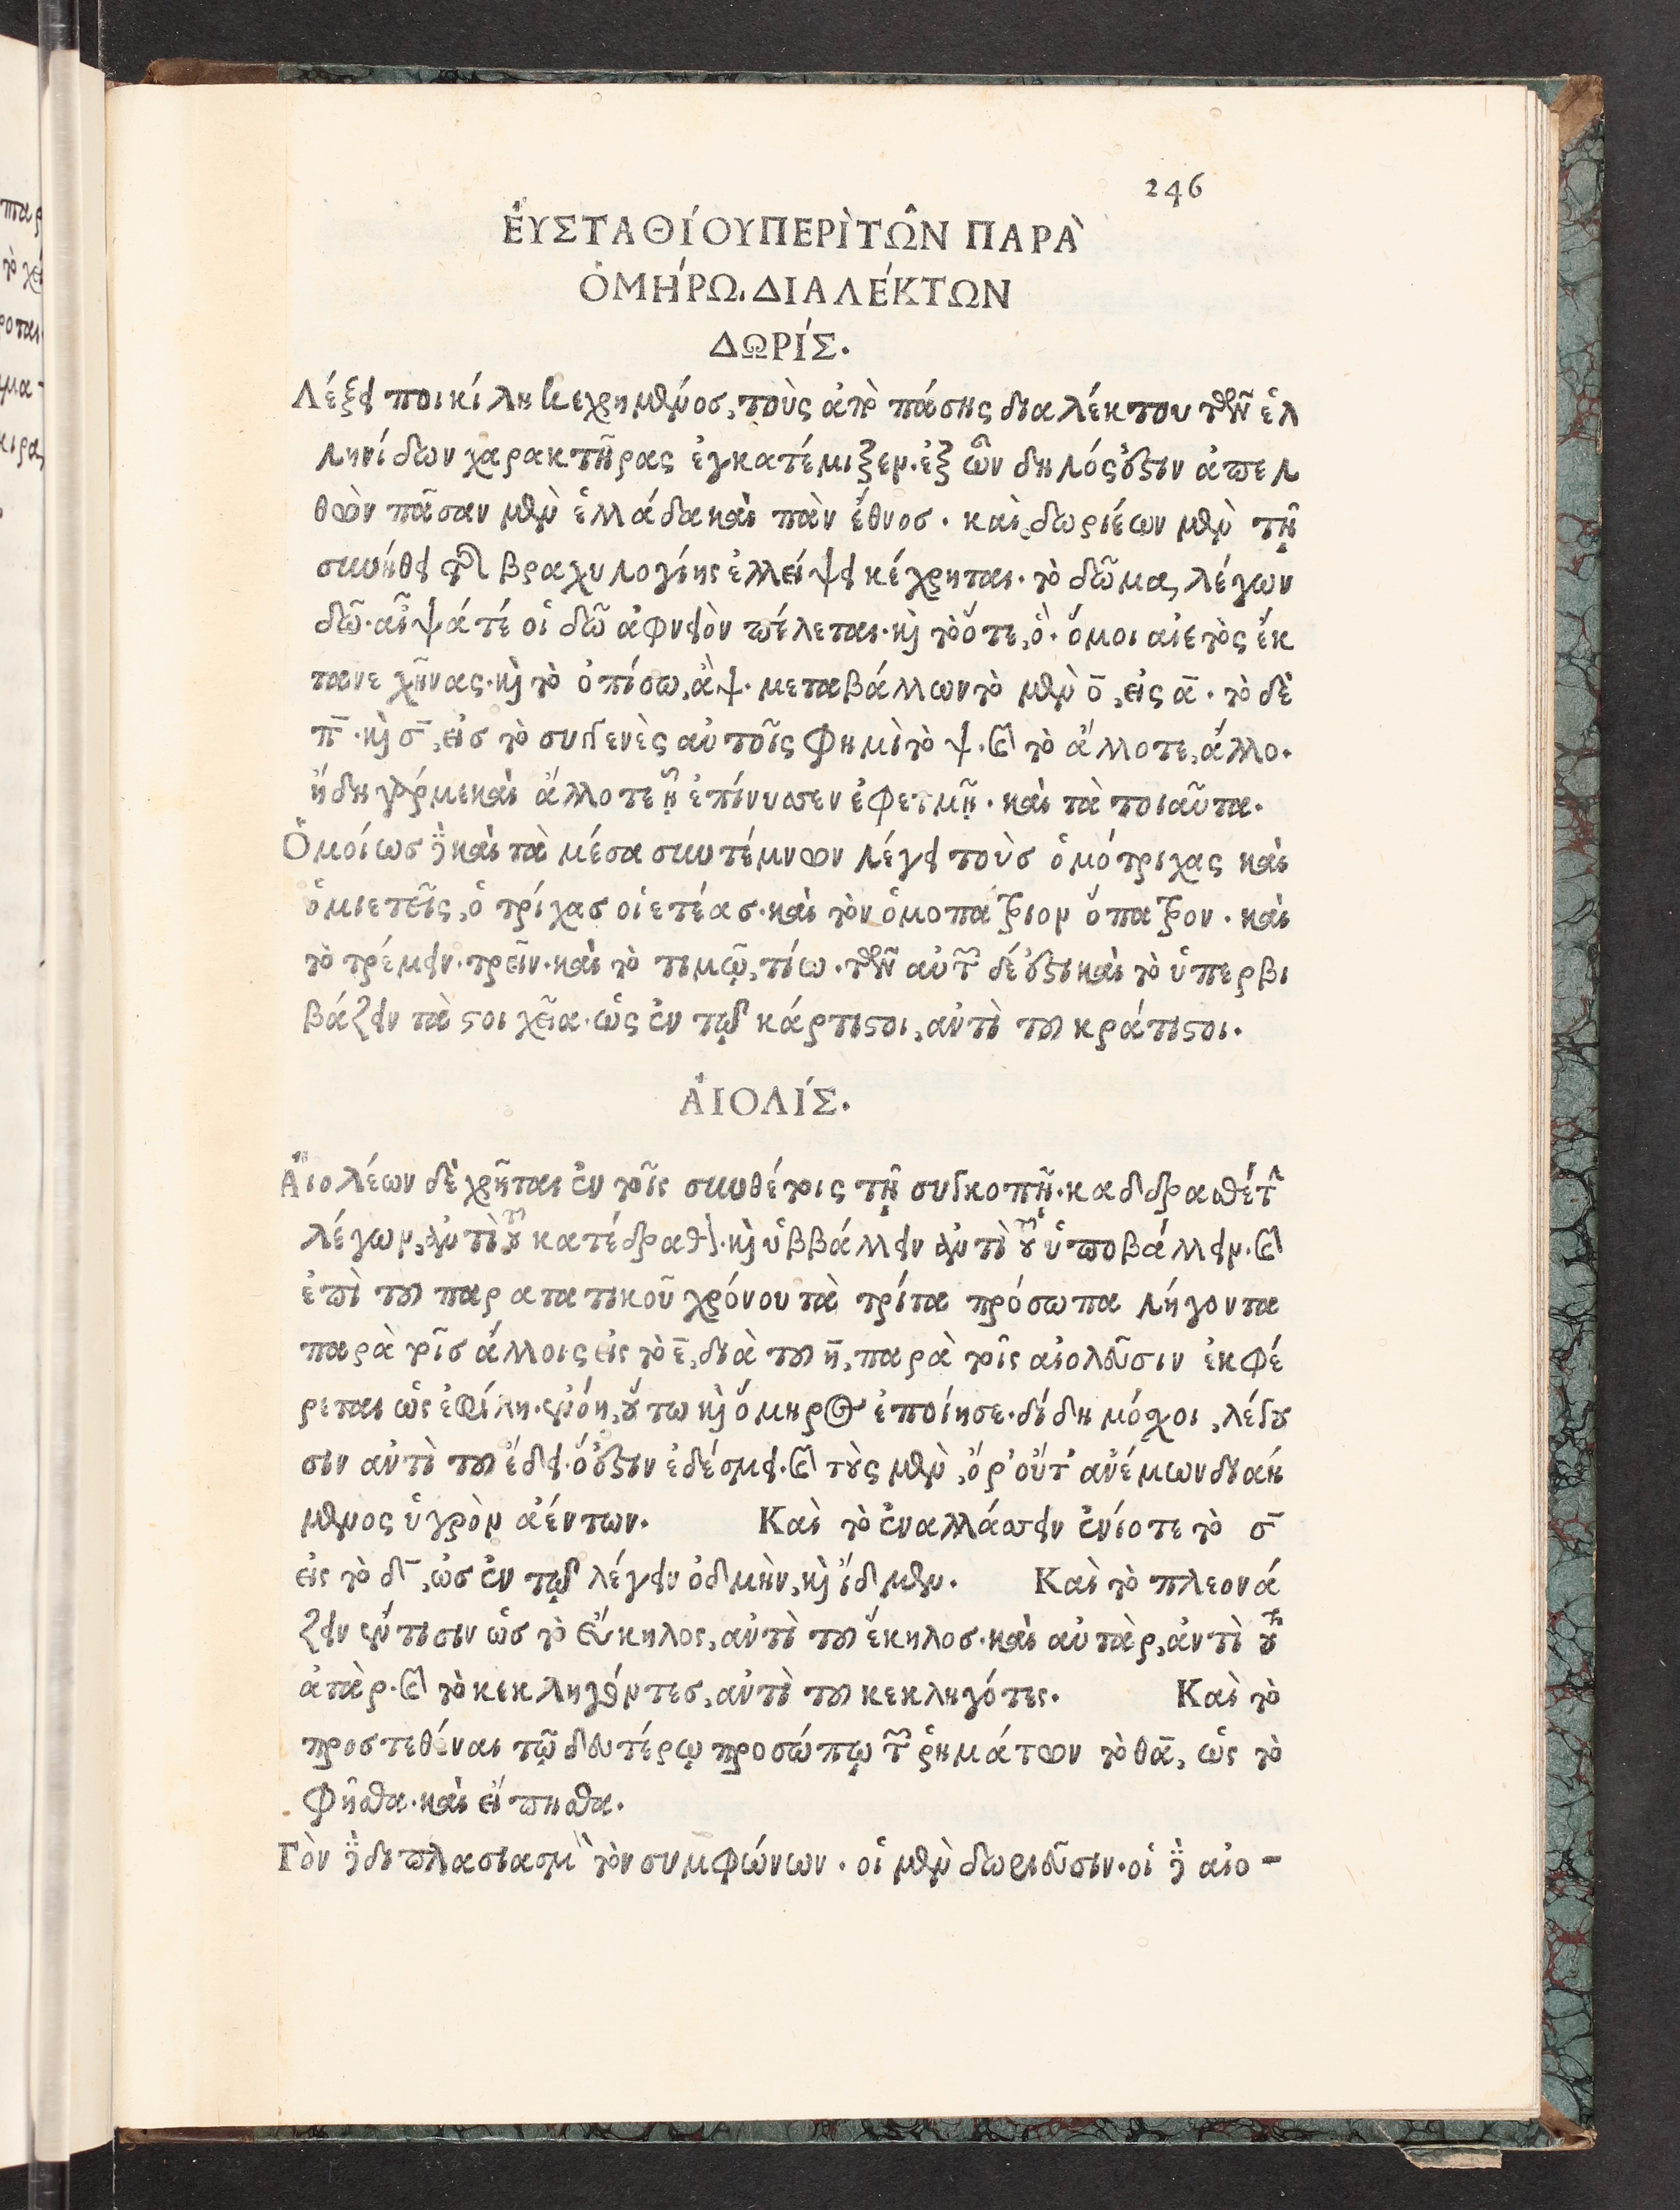 246
ἘΥΣΤΑΘΊΟΥ ΠΕΡῚ ΤΩ͂Ν ΠΑΡᾺ
ὉΜΉΡΩι ΔΙΑΛΈΚΤΩΝ
ΔΩΡΊΣ.
Λέξει ποικίλη κεχρημένος, τοὺς ἀπὸ πάσης διαλέκτου τῶν ἑλ
ληνίδων χαρακτῆρας ἐγκατέμιξεν. ἐξ ὧν δηλός ἐστιν ἀπελ
θὼν πᾶσαν μὲν ἑλλάδα καὶ πὰν ἔθνος. καὶ δωριέων μὲν τῇ
συνήθει τῆς βραχυλογίης ἐλλείψει κέχρηται. τὸ δῶμα, λέγων
δῶ. αἶψά τέ οἱ δῶ ἀφνειὸν πέλεται. καὶ τὸ ὅτε, ὁ. ὅ μοι αἰετὸς ἔκ
τανε χῆνας. καὶ τὸ ὀπίσω, ἂψ. μεταβάλλων τὸ μὲν ο̄, εἰς ᾱ. τὸ δὲ
π̄. καὶ σ̄, εἰς τὸ συγγενὲς αὐτοῖς φημὶ τὸ ψ. καὶ τὸ ἄλλοτε, ἄλλο.
ἤδη γάρ με καὶ ἄλλο τεῇ ἐπίνυσσεν ἐφετμῇ. καὶ τὰ τοιαῦτα.
Ὁμοίως δὲ καὶ τὰ μέσα συντέμνων λέγει τοὺς ὁμότριχας καὶ
ὁμιετεῖς, ὁ τρίχας οἰετέας. καὶ τὸν ὁμοπάτριον ὄπατρον. καὶ
τὸ τρέμειν. τρεῖν. καὶ τὸ τιμῶ, τίω. τῶν αὐτῶν δέ ἐστι καὶ τὸ ὑπερβι
βάζειν τὰ στοιχεῖα. ὡς ἐν τῷ κάρτιστοι, ἀντὶ τοῦ κράτιστοι.
ἈΙΟΛΊΣ.
Αἰολέων δὲ χρῆται ἐν τοῖς συνθέτοις τῇ συγκοπῇ. καδδραθέτην
λέγων, ἀντὶ τοῦ κατέδραθον. καὶ ὑββάλλειν ἀντὶ τοῦ ὑποβάλλειν. καὶ
ἐπὶ τοῦ παρατατικοῦ χρόνου τὰ τρίτα πρόσωπα λήγοντα
παρὰ τοῖς ἄλλοις εἰς τὸ ε̄, διὰ τοῦ η̄, παρὰ τοῖς αἰολεῦσιν ἐκφέ
ρεται ὡς ἐφίλη. ἐνόη, οὕτω καὶ ὅμηρος ἐποίησε. δίδη μόσχοι, λέγου
σιν ἀντὶ τοῦ ἔδει. ὅ ἐστιν ἐδέσμει. καὶ τοὺς μὲν, ὄρ' οὔτ' ἀνέμων διαή
μενος ὑγρὸν ἀέντων. Καὶ τὸ ἐναλλάσσειν ἐνίοτε τὸ σ̄
εἰς τὸ δ̄, ὡς ἐν τῷ λέγειν ὀδμὴν, καὶ ἴδμεν. Καὶ τὸ πλεονά
ζειν ἔν τισιν ὡς τὸ εὔκηλος, ἀντὶ τοῦ ἔκηλος. καὶ αὐτὰρ, ἀντὶ τοῦ
ἀτὰρ. καὶ τὸ κεκληγόντες, ἀντὶ τοῦ κεκληγότες. Καὶ τὸ
προστεθέναι τῷ δευτέρῳ προσώπῳ τῶν ῥημάτων τὸ θᾱ, ὡς τὸ
φῆσθα. καὶ εἴπησθα.
Τὸν δὲ διπλασιασμὸν τὸν συμφώνων. οἱ μὲν δωριεῦσιν. οἱ δὲ αἰο-